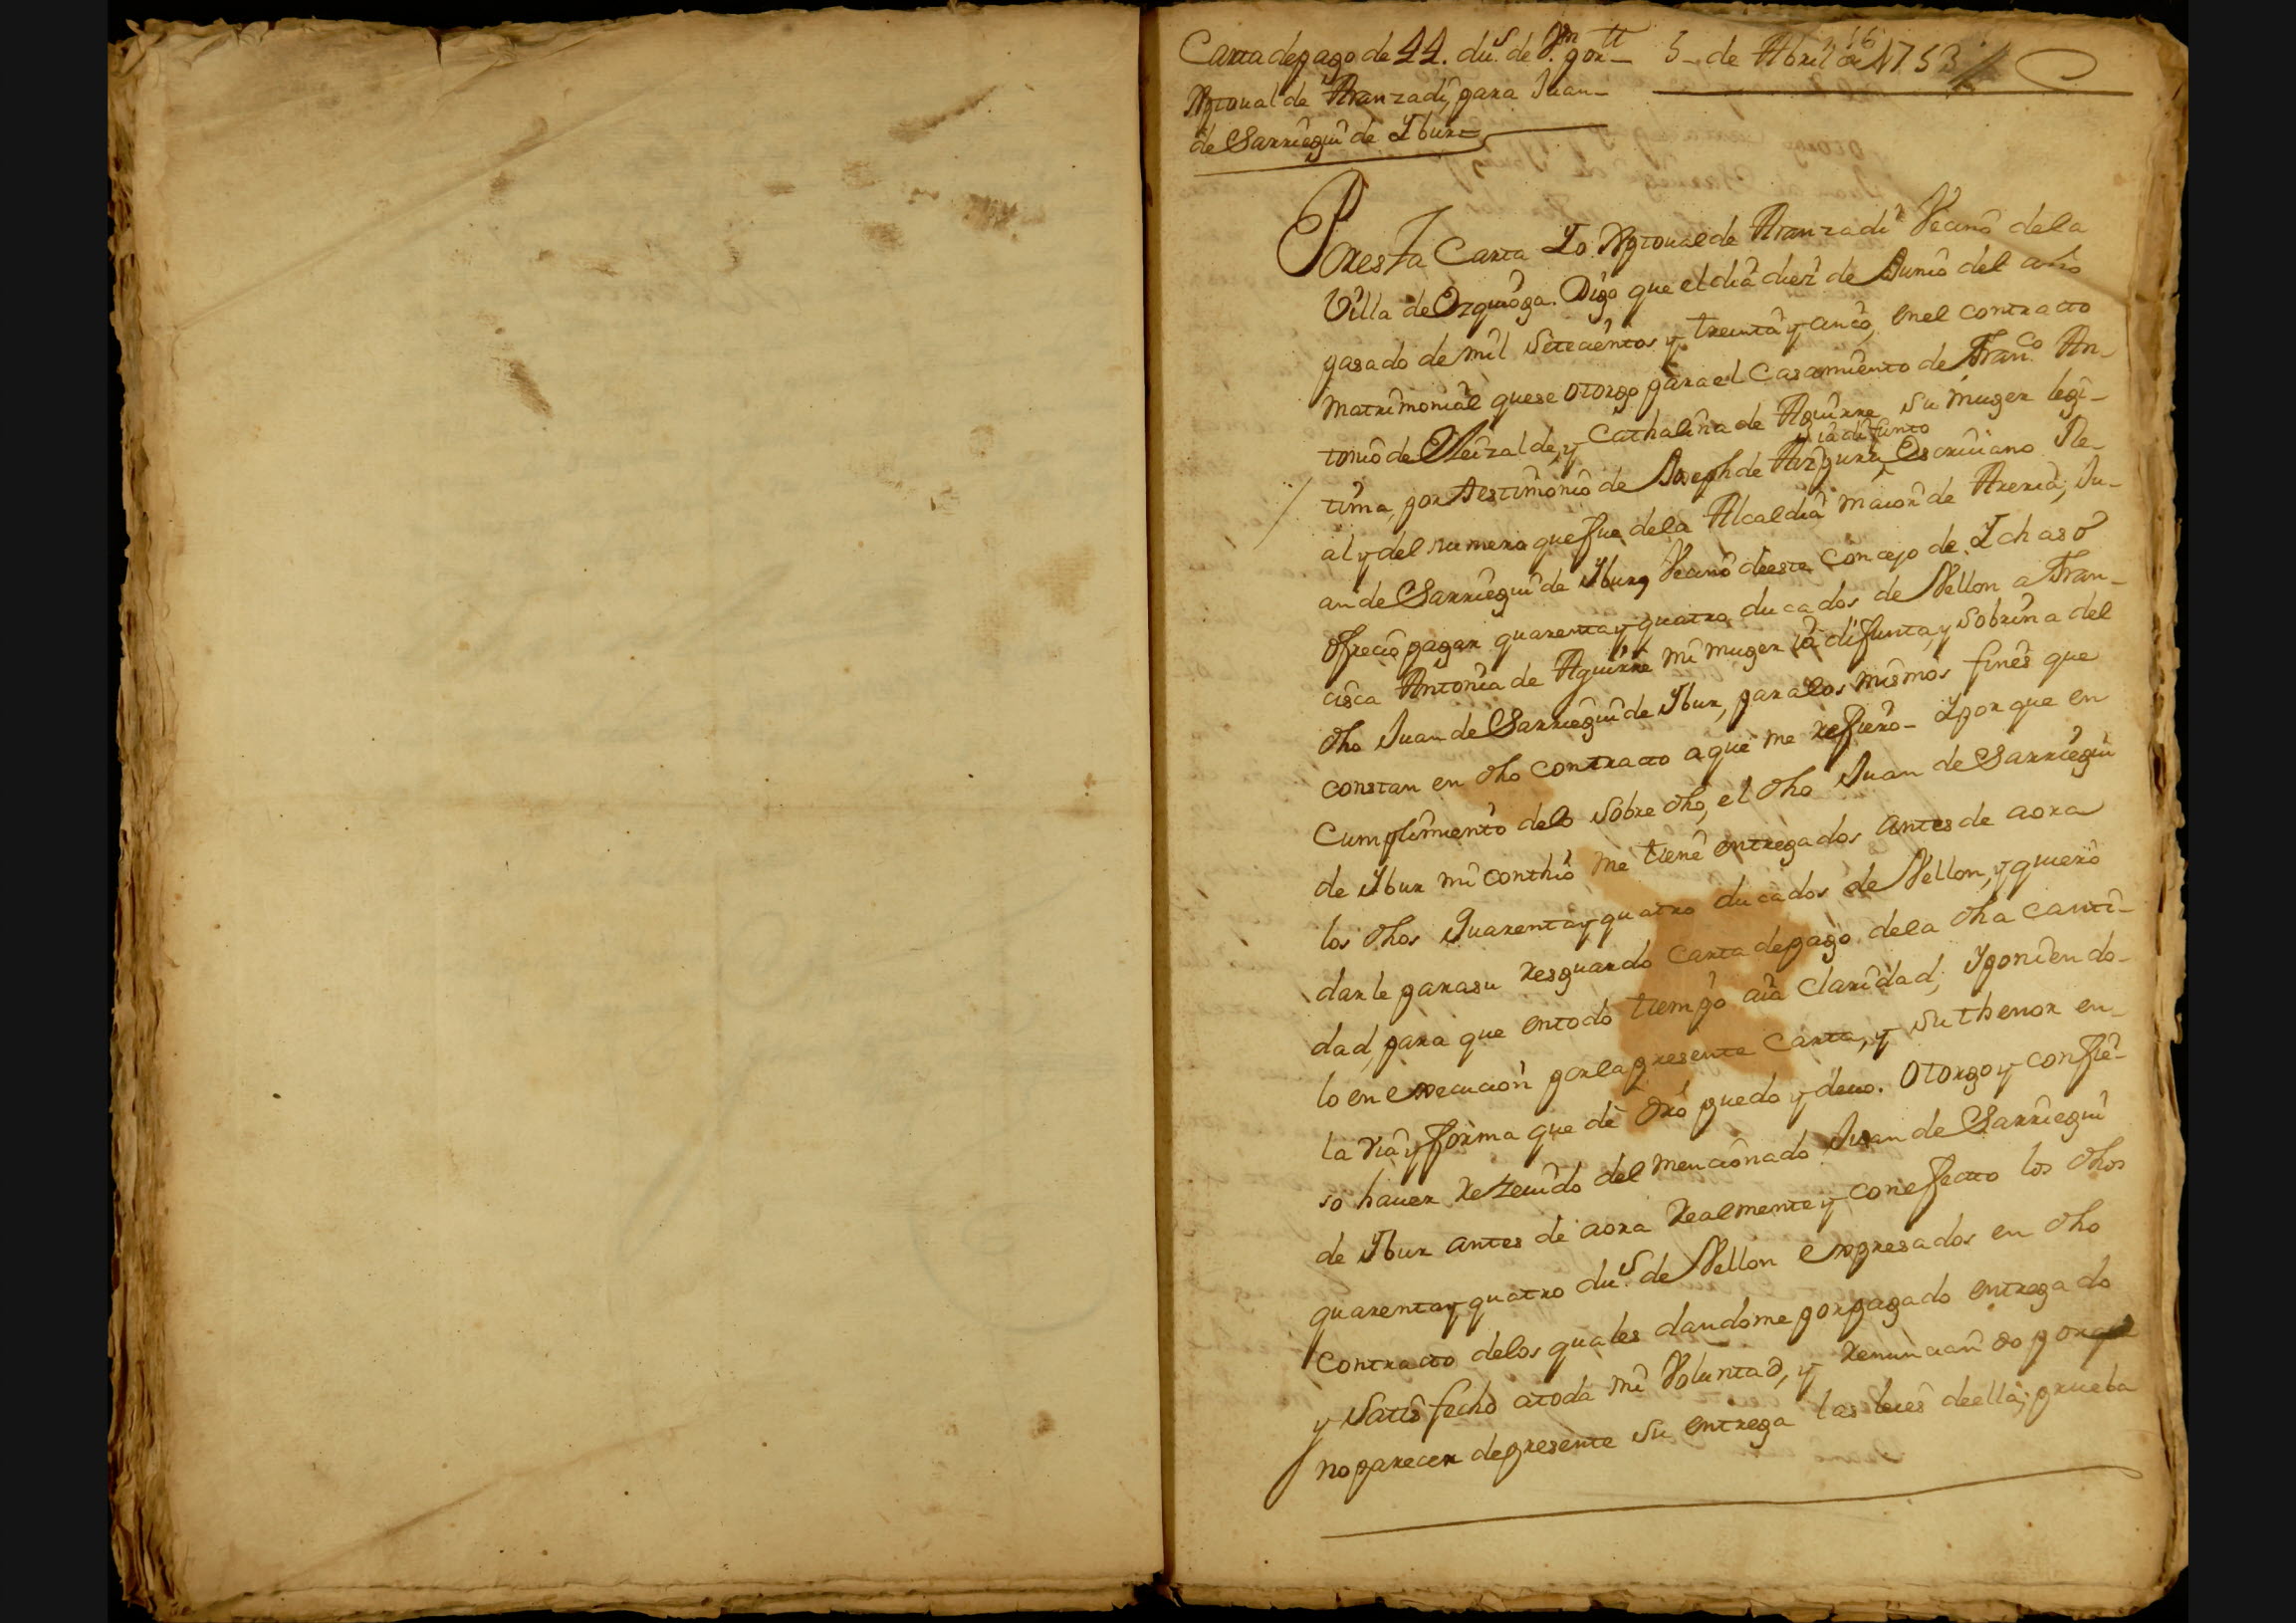 Carta de pago de 44. du.s de V.on por
5 de Abril de 1753
16
Xptoual de Aranzadi, para Juan
de Sarriegui de Ybur=
Por esta Carta Yo Xptoual de Aranzadi Vecino dela
Villa de Ezquioga. Digo que el dia diez de Junio del año
pasado de mil setecientos y treinta y cinco, en el contracto
matrimonial que se otorgo para el Casamiento de Fran.co An-
tonio de Eleizalde, y Cathalina de Aguirre su muger legi-
ia difunto
tima, por testimonio de Joseph de Escriuano Re-
al y del numero que fue dela Alcaldia maior de Areria, Ju-
an de Sarriegui de Ybur, Vecino de este Concejo de Ychaso
ofrecio pagar quarenta y quatro ducados de Vellon a Fran-
cisca Antonia de Aguirre mi muger ia difunta, y sobrina del
dho Juan de Sarriegui de Ybur, para los mismos fines que
constan en dho contracto a que me refiero- Y por que en
Cumplimiento delo sobre dho, el dho Juan de Sarriegui
de Ybur mi conthio me tiene entregados antes de aora
los dhos quarenta y quatro ducados de Vellon, y quiero
darle para su resguardo Carta de pago dela dha canti-
dad, para que en todo tiempo aia claridad, y poniendo-
lo en execucion por la presente Carta, y su thenor en
la via y forma que de dro puedo y deuo. Otorgo y confie-
so hauer rezeuido del mencionado Juan de Sarriegui
de Ybur antes de aora realmente y con efecto los dhos
quarenta y quatro du.s de Vellon expresados en dho
contracto delos quales dandome por pagado entregado
y satisfecho a toda mi Voluntad, y renunciando por que
no parecer de presente su entrega las leies de ella, prueba